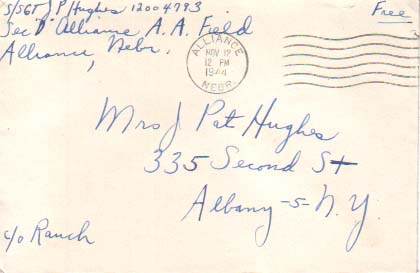 S/SGT J P Hughes 12004793
Sec D Alliance A. A. Field
Alliance, Nebr.
Free
ALLIANCE
NOV 12
12 PM
1944
NEBR.
Mrs J Pat Hughes
335 Second St
Albany -5- N.Y.
c/o Ranch